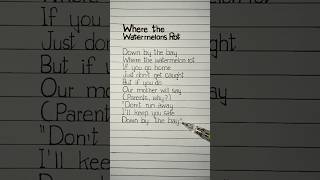 Where the
Watermelons Rot
Down by the bay
Where the watermelon rot
If you go home
Just don't get caught
But if you do
Our mother will say
(Parents, why?)
"Don't run away
I'll keep you safe
Down by the bay"
If you
Just don't
But if
Our mo
(Paren
"Don't
I'll ke